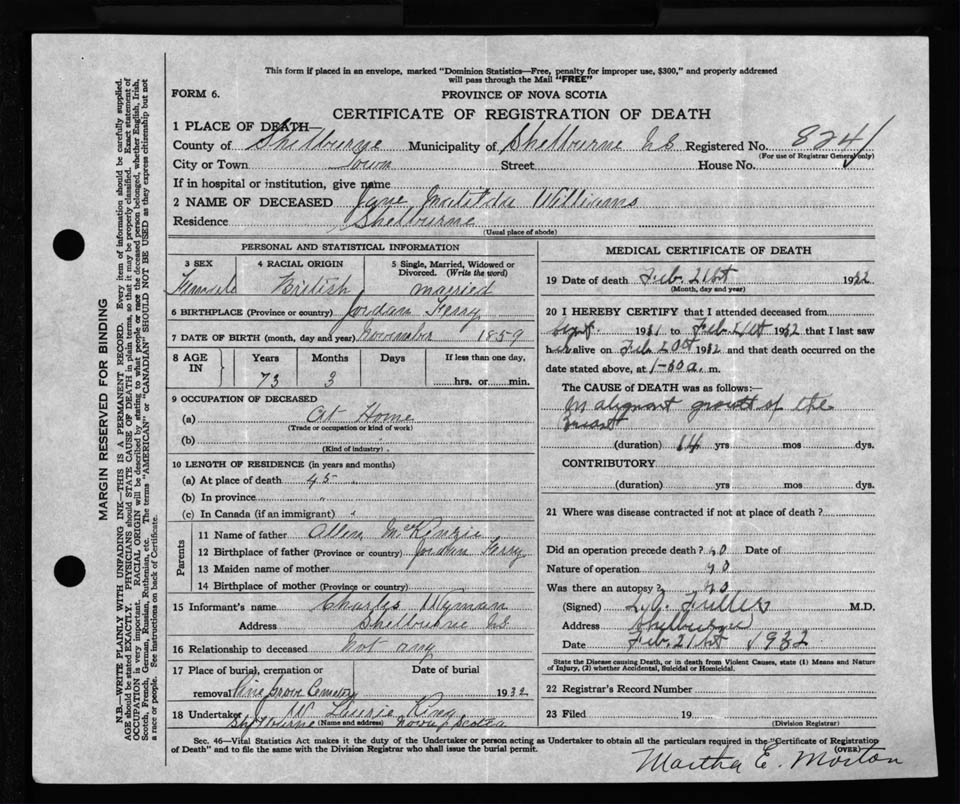 This form if placed in an envelope, marked "Dominion Statistics—Free, penalty for improper use, $300," and properly addressed
will pass through the Mail "FREE"
FORM 6.
PROVINCE OF NOVA SCOTIA
CERTIFICATE OF REGISTRATION OF DEATH
1 PLACE OF DEATH—
County of Shelburne Municipality of Shelburne NS Registered No. 8241
(For use of Registrar General only)
City or Town Town Street House No.
If in hospital or institution, give name
2 NAME OF DECEASED Jane Matilda Williams
Residence Shelburne
(Usual place of abode)
PERSONAL AND STATISTICAL INFORMATION
3 SEX 4 RACIAL ORIGIN 5 Single, Married, Widowed or
Divorced. (Write the word)
Female British married
6 BIRTHPLACE (Province or country) Jordan Ferry
7 DATE OF BIRTH (month, day and year) November 1859
8 AGE IN Years Months Days If less than one day,
73 3 hrs. or min.
9 OCCUPATION OF DECEASED
(a) At Home
(Trade or occupation or kind of work)
(b)
(Kind of industry)
10 LENGTH OF RESIDENCE (in years and months)
(a) At place of death 45 "
(b) In province "
(c) In Canada (if an immigrant) "
Parents
11 Name of father Allen McKenzie
12 Birthplace of father (Province or country) Jordan Ferry
13 Maiden name of mother
14 Birthplace of mother (Province or country)
15 Informant's name Charles Hyman
Address Shelburne NS
16 Relationship to deceased Not any
17 Place of burial, cremation or Date of burial
removal Pine Grove Cemetery 1932
18 Undertaker W Laurie King
Shelburne (Name and address) Nova Scotia
MEDICAL CERTIFICATE OF DEATH
19 Date of death Feb. 21st 1932
(Month, day and year)
20 I HEREBY CERTIFY that I attended deceased from
Sept. 1931 to Feb. 21st 1932 that I last saw
her alive on Feb. 20st 1932 and that death occurred on the
date stated above, at 1-30 a. m.
The CAUSE of DEATH was as follows:—
Malignant growth of the
breast
(duration) 14 yrs mos dys.
CONTRIBUTORY
(duration) yrs mos dys.
21 Where was disease contracted if not at place of death?
Did an operation precede death? no Date of
Nature of operation no
Was there an autopsy? no
(Signed) Fuller M.D.
Address Shelburne
Date Feb. 21st 1932
State the Disease causing Death, or in death from Violent Causes, state (1) Means and Nature
of Injury, (2) whether Accidental, Suicidal or Homicidal.
22 Registrar's Record Number
23 Filed 19
(Division Registrar)
Sec. 46—Vital Statistics Act makes it the duty of the Undertaker or person acting as Undertaker to obtain all the particulars required in the "Certificate of Registration
of Death" and to file the same with the Division Registrar who shall issue the burial permit. (OVER)
Martha E. Morton
MARGIN RESERVED FOR BINDING
N.B.—WRITE PLAINLY WITH UNFADING INK—THIS IS A PERMANENT RECORD. Every item of information should be carefully supplied.
AGE should be stated EXACTLY. PHYSICIANS should STATE CAUSE OF DEATH in plain terms, so that it may be properly classified. Exact statement of
OCCUPATION is very important. RACIAL ORIGIN will be described by stating to what people or race the deceased person belonged, whether English, Irish,
Scotch, French, German, Russian, Ruthenian, etc. The terms "AMERICAN" or "CANADIAN" SHOULD NOT BE USED as they express citizenship but not
a race or people. See instructions on back of Certificate.